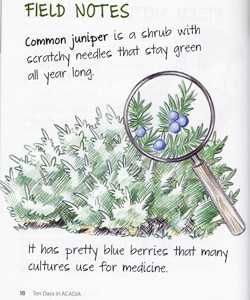 FIELD NOTES
Common juniper is a shrub with
scratchy needles that stay green
all year long.
It has pretty blue berries that many
cultures use for medicine.
18 Ten Days in ACADIA